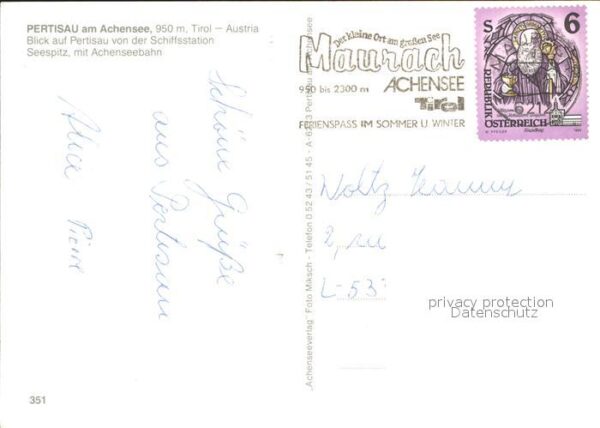 PERTISAU am Achensee, 950 m, Tirol – Austria
Blick auf Pertisau von der Schiffsstation
Seespitz, mit Achenseebahn
Schöne Grüße
aus Pertisau
Alice Pierre
351
"Achenseeverlag" Foto Miksch - Telefon 0 52 43 / 51 45 - A-6213 Pertisau am Achensee
Der kleine Ort am großen See
Maurach
950 bis 2300 m ACHENSEE
Tirol
FERIENSPASS IM SOMMER U. WINTER
S 6
REPUBLIK
ÖSTERREICH
Woltz Fanny
2, rue
L-533
privacy protection
Datenschutz